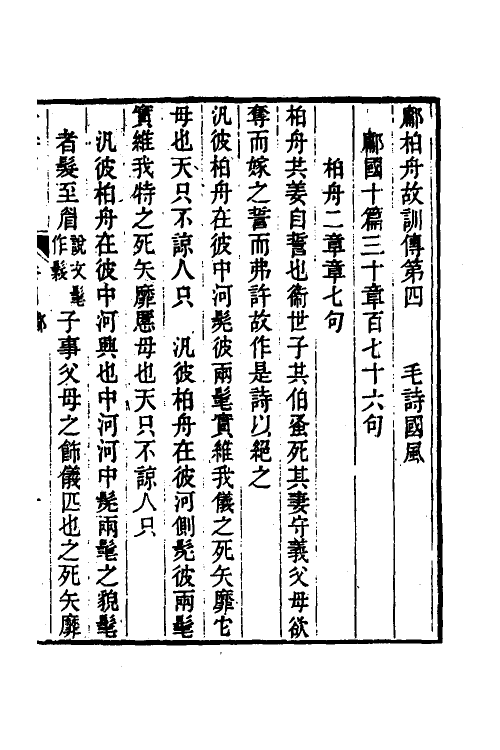 鄘柏舟故訓傳第四　毛詩國風
鄘國十篇三十章百七十六句
柏舟二章章七句
柏舟共姜自誓也衞世子共伯蚤死其妻守義父母欲
奪而嫁之誓而弗許故作是詩以絕之
汎彼柏舟在彼中河髧彼兩髦實維我儀之死矢靡它
母也天只不諒人只　汎彼柏舟在彼河側髧彼兩髦
實維我特之死矢靡慝母也天只不諒人只
汎彼柏舟在彼中河興也中河河中髧兩髦之貌髦
者髮至眉說文髦作髳子事父母之飾儀匹也之死矢靡